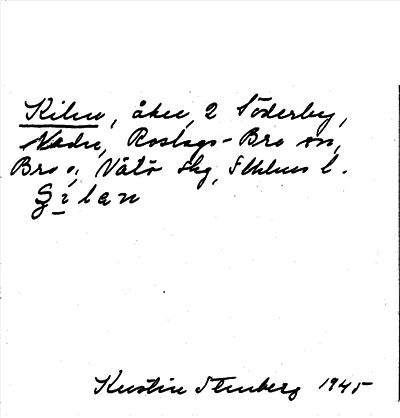 Kilen, åker, 2 Söderby,
Nedre, Roslags-Bro sn,
Bro o. Vätö skg, Sthlms l.
Kerstin Stenberg 1945